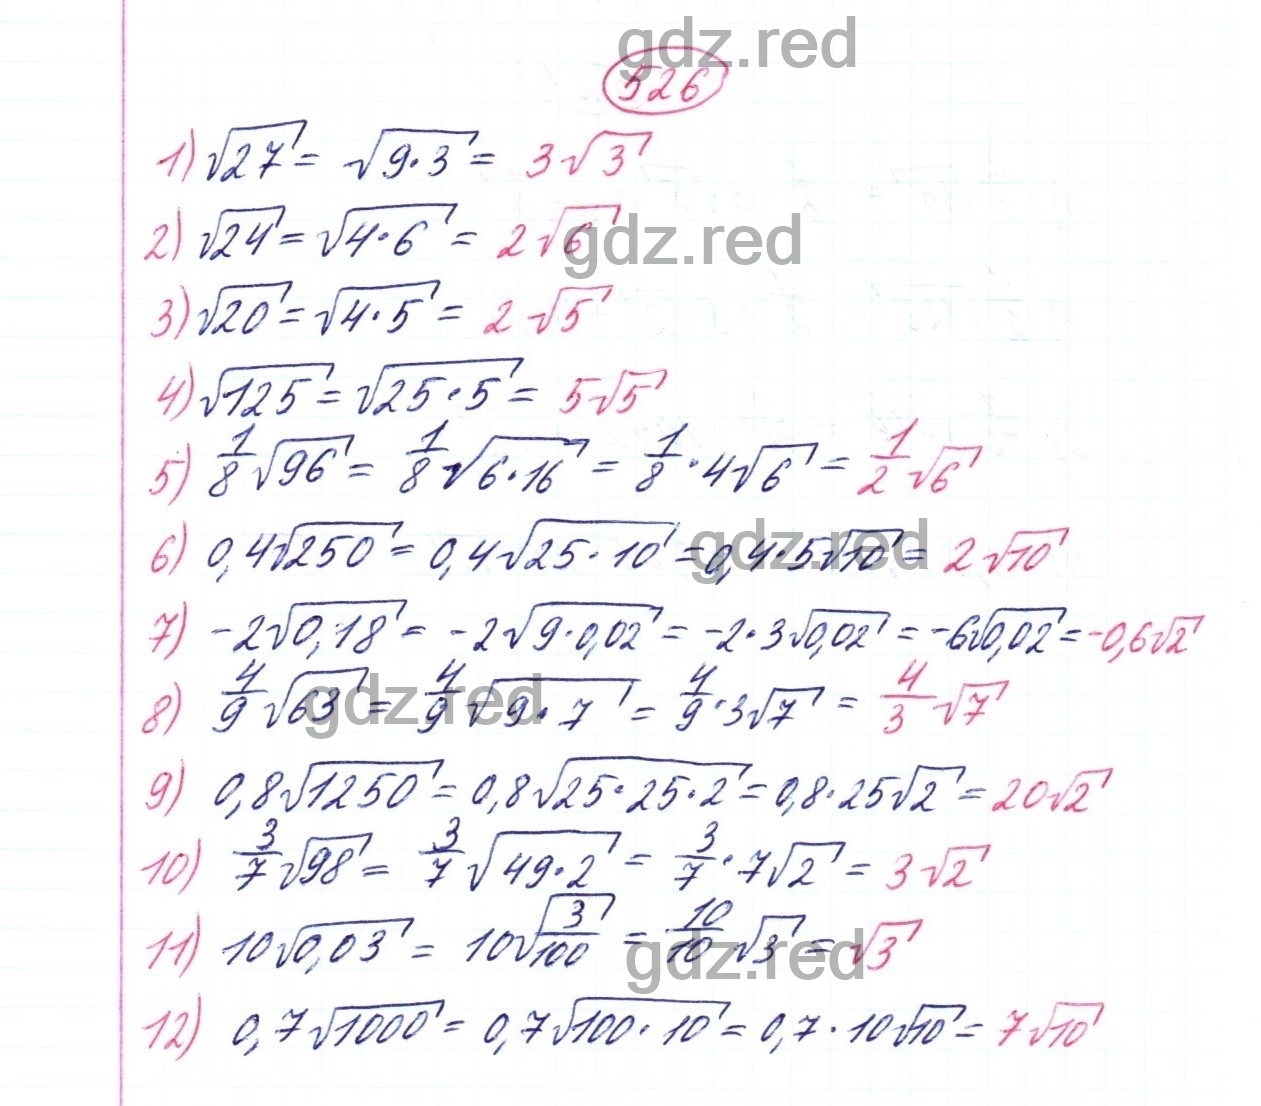 gdz.red
526
1) √27 = √9·3 = 3√3
2) √24 = √4·6 = 2√6
gdz.red
3) √20 = √4·5 = 2√5
4) √125 = √25·5 = 5√5
5) 1/8 √96 = 1/8 √6·16 = 1/8 · 4√6 = 1/2 √6
6) 0,4√250 = 0,4√25·10 = 0,4·5√10 = 2√10
gdz.red
7) -2√0,18 = -2√9·0,02 = -2·3√0,02 = -6√0,02 = -0,6√2
8) 4/9 √63 = 4/9 √9·7 = 4/9 · 3√7 = 4/3 √7
gdz.red
9) 0,8√1250 = 0,8√25·25·2 = 0,8·25√2 = 20√2
10) 3/7 √98 = 3/7 √49·2 = 3/7 · 7√2 = 3√2
11) 10√0,03 = 10√3/100 = 10/10 √3 = √3
gdz.red
12) 0,7√1000 = 0,7√100·10 = 0,7·10√10 = 7√10